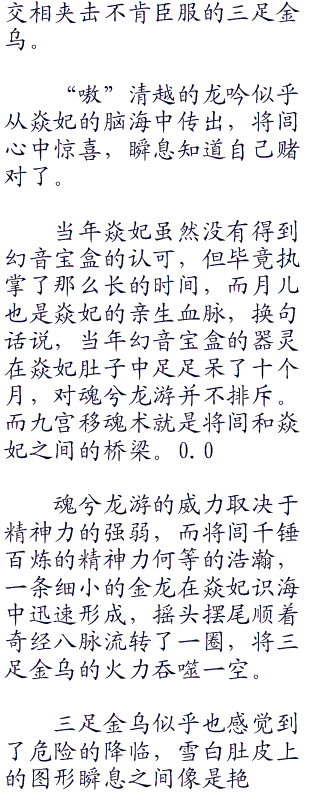 交相夹击不肯臣服的三足金
乌。
“嗷”清越的龙吟似乎
从焱妃的脑海中传出，将闾
心中惊喜，瞬息知道自己赌
对了。
当年焱妃虽然没有得到
幻音宝盒的认可，但毕竟执
掌了那么长的时间，而月儿
也是焱妃的亲生血脉，换句
话说，当年幻音宝盒的器灵
在焱妃肚子中足足呆了十个
月，对魂兮龙游并不排斥。
而九宫移魂术就是将闾和焱
妃之间的桥梁。0.0
魂兮龙游的威力取决于
精神力的强弱，而将闾千锤
百炼的精神力何等的浩瀚，
一条细小的金龙在焱妃识海
中迅速形成，摇头摆尾顺着
奇经八脉流转了一圈，将三
足金乌的火力吞噬一空。
三足金乌似乎也感觉到
了危险的降临，雪白肚皮上
的图形瞬息之间像是艳